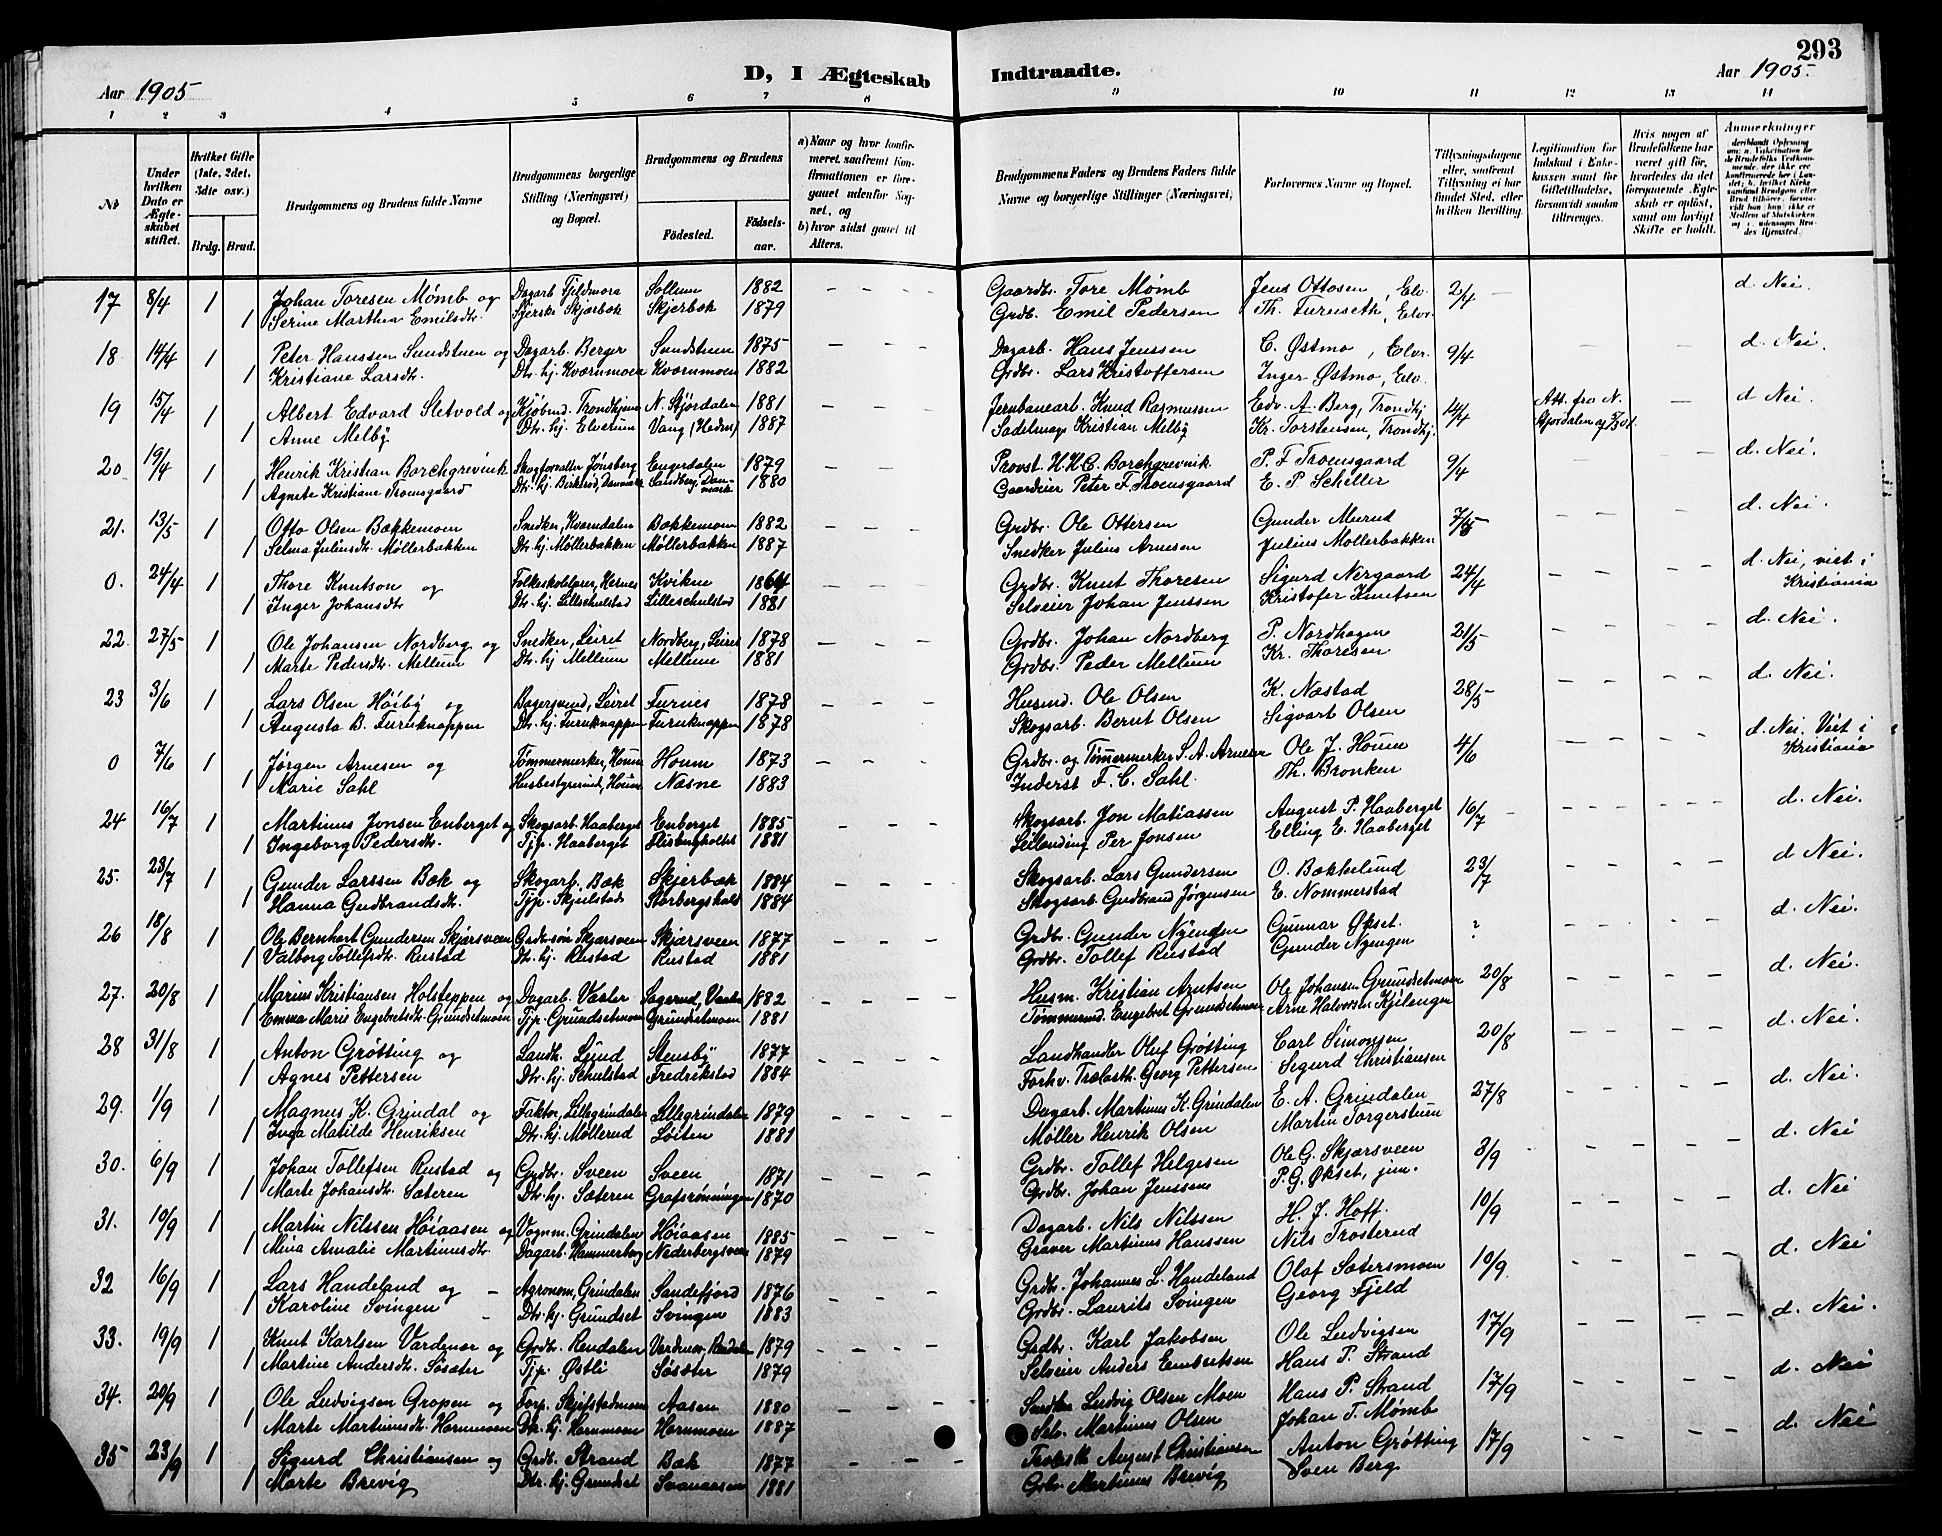 293
D, I Ægteskab Indtraadte.
Aar 1905 Aar 1905.
1 2 3 4 5 6 7 8 9 10 11 12 13 14
№
Under hvilken Dato er Ægteskabet stiftet.
Hvilket Gifte (1ste, 2det, 3dte osv.)
Brdg. Brud.
Brudgommens og Brudens fulde Navne
Brudgommens borgerlige Stilling (Næringsvei) og Bopæl.
Brudgommens og Brudens
Födested. Födselsaar.
a) Naar og hvor konfirmeret, saafremt Konfirmationen er foregaaet udenfor Sognet, og
b) hvor sidst gaaet til Alters.
Brudgommens Faders og Brudens Faders fulde Navne og borgerlige Stillinger (Næringsvei)
Forlovernes Navne og Bopæl.
Tillysningsdagene eller, saafremt Tillysning ei har fundet Sted, efter hvilken Bevilling.
Legitimation for Indskud i Enkekassen samt for Giftetilladelse, forsaavidt saadan tiltrænges.
Hvis nogen af Brudefolkene har været gift för, hvorledes da det foregaaende Ægteskab er oplöst, samt om lovligt Skifte er holdt.
Anmerkninger
17 8/4 1 Johan Toresen Mømb og Dagarb. Fjeldmora Sollum 1882 – – – Gaardbr. Tore Mømb Jens Ottosen, Elv. 2/4 – d. Nei.
1 Serine Marthea Emilsdtr. Skjærbok Skjerbok 1879 Grdb. Emil Pedersen Th. Furuseth, Elvr.
18 14/4 1 Peter Hanssen Sundstuen og Dagarb. Berger Sundstuen 1875 – – – Dagarb. Hans Jenssen C. Østmo, Elvr. 9/4 d. Nei.
1 Kristiane Larsdtr. Dtr. hj. Kværnmoen Kværnmoen 1882 Grdbr. Lars Kristoffersen Inger Østmo, Elv.
19 15/4 1 Albert Edvard Sletvold og Kjøbmd. Trondhjem N. Stjørdalen 1881 – – – Jernbanearb. Knud Rasmussen Edv. A. Berg, Trondhj. 24/4 Att. fra N. – d Nei.
1 Anne Melby Dtr. hj. Elverum Vang (Hedm) 1887 Sadelmag. Kristian Melby Kr. Torstensen, Trondhj. Stjørdalen
20 19/4 1 Henrik Kristian Borchgrevink Skogforvalter Jønsberg Engerdalen 1879 – – – Provst H. H. C. Borchgrevink P. F. Troensgaard 9/4 d. Nei.
1 Agnete Kristiane Troensgaard Dtr. hj. Birkerød, Danmark Sandberg, Danmark 1880 Gaardeier Peter F. Troensgaard E. P. Schiller
21. 13/5 1 Otto Olsen Bækkemoen Snedker, Kværndalen Bækkemoen 1882 – – – Grdbr. Ole Ottersen Gunder Murud 7/5 d. Nei.
1 Selma Juliusdtr. Møllerbakken Dtr. hj. Møllerbakken Møllerbakken 1887 Snedker Julius Arnesen Julius Møllerbakken
0. 24/4 1 Thore Knutson og Folkeskolelærer, Hernes Kvikne 1864 – – – Grdbr. Knut Thoresen Sigurd Nergaard 24/4 d. Nei, viet i
1 Inger Johansdtr Dtr. hj. Lilleschulstad Lilleschulstad 1881 Selveier Johan Jenssen Kristofer Knutsen Kristiania
22. 27/5 1 Ole Johansen Nordberg og Snedker, Leiret Nordberg, Leiret 1878 – – Grdbr. Johan Nordberg P. Nordhagen 21/5 d. Nei.
1 Marte Pedersdtr. Mellum Dtr. hj Mellum Mellum 1881 Grdbr. Peder Mellum Kr. Thoresen
23 3/6 1 Lars Olsen Høibø og Bagersvend, Leiret Furnes 1878 – – – Husmd. Ole Olsen K. Næstad 28/5 d. Nei.
1 Augusta B. Furuknappen Dtr. hj. Furuknappen Furuknappen 1878 Skogsarb. Bernt Olsen Sigvart Olsen
0 7/6 1 Jørgen Arnesen og Tømmermerker, Houm Houm 1873 – – – Grdbr. og Tømermerker S. A. Arnesen Ole J. Houm 4/6 d. Nei. Viet i
1 Marie Sahl Husbestyrerind, Houm Næsne 1883 Inderst F. C. Sahl. Th. Bronken Kristiania
24 16/7 1 Martinus Jonsen Enberget og Skogsarb. Haaberget Enberget 1885 – – – Skogsarb. Jon Matiassen August P. Haaberget 16/7 d. Nei.
1 Ingeborg Pedersdtr. Tjp. Haaberget Flisbergholtet 1881 Leilænding Per Jonsen Elling E. Haaberget
25. 23/7 1 Gunder Larssen Bæk og Skogarb. Bæk Skjerbæk 1884 – – – Skogsarb. Lars Gundersen O. Bækkelund 23/7 d Nei.
1 Hanna Gudbrandsdtr. Tjp. Skjulstad Storbergshold 1884 Skogsarb. Gudbrand Jørgensen E. Nommerstad
26 18/8 1 Ole Bernhart Gundersen Skjærsveen Grdbr.søn Skjærsveen Skjærsveen 1877 – – – Grdbr. Gunder Nyengen Gunnar Økset. ? d. Nei.
1 Valborg Tollefsdtr. Rustad Dtr. hj. Rustad Rustad 1881 Grdbr. Tollef Rustad Gunder Nyengen
27. 20/8 1 Marius Kristiansen Holsteppen og Dagarb. Vaaler Sagerud, Vaaler 1882 – – – Husm. Kristian Arntsen Ole Johansen Grundsetmoen 20/8 d. Nei.
1 Emma Marie Engebretsdtr. Grundsetmoen Tjp. Grundsetmoen Grundsetmoen 1881 Tømmermd. Engebret Grundsetmoen Arne Halvorsen Kjelangen
28 31/8 1 Anton Grøtting og Landh. Lund Stensby 1877 – – – Landhandler Oluf Grøtting Carl Simonsen 20/8 d. Nei.
1 Agnes Pettersen Dtr. hj. Schulstad Fredrikstad 1884 Forhv. Trælasth. Georg Pettersen Sigurd Christiansen
29. 1/9 1 Magnus K. Grindal og Faktor, Lillegrindalen Lillegrindalen 1879 – – – Dagarb. Martinus K. Grindalen E. A. Grindalen 27/8 d. Nei.
1 Inga Matilde Henriksen Dtr. hj. Møllerud Løiten 1881 Møller Henrik Olsen Martin Torgerstuen
30. 6/9 1 Johan Tollefsen Rustad og Grdbr. Sveen Sveen 1871 – – – Grdbr. Tollef Helgesen Ole G. Skjærsveen 3/9 d. Nei
1 Marte Johansdtr. Sæteren Dtr. hj. Sæteren Grafsrønningen 1870 Grdbr. Johan Jenssen P. G. Økset, jun.
31. 10/9 1 Martin Nilssen Høiaasen og Vognm. Grindalen Høiaasen 1885 – – – Dagarb. Nils Nilssen H. J. Hoff. 10/9 d. Nei
1 Mina Amalie Martinusdtr. Dagarb. Hammerberg Nederbergsveen 1879 Graver Martinus Hanssen Nils Trosterud
32 16/9 1 Lars Handeland og – Agronom, Grindalen Sandefjord 1876 – – – Grdbr. Johannes L. Handeland Olaf Sætersmoen 10/9 d. Nei
1 Karoline Svingen Dtr. hj. Grundset Svingen 1883 Grdbr. Laurits Svingen Georg Fjeld
33. 19/9 1 Knut Karlsen Vardenær og Grdbr. Rendalen Vardenær, Rendalen 1879 – – – Grdbr. Karl Jakobsen Ole Ludvigsen 17/9 d. Nei.
1 Martine Andersdtr. Søsæter Tjp. Østli Søsæter 1879 Selveier Anders Embretsen Hans P. Strand
34. 20/9 1 Ole Ludvigsen Gropen og Forp. Skjefstadmoen Aasen 1880 – – – Snedker Ludvig Olsen Moen Hans P. Strand 17/9 d. Nei
1 Marte Martinusdtr. Hornmoen Dtr. hj. Hornmoen Hornmoen 1887 Selv. Martinus Olsen Johan T. Mømb
35 23/9 1 Sigurd Christiansen og Grdb. Strand Bæk 1877 – – – Trælasth August Christiansen Anton Grøtting 17/9 d. Nei
1 Marte Brevig Dtr. hj. Grundset Svanaasen 1881 Grbr. Martinus Brevig Sven Berg